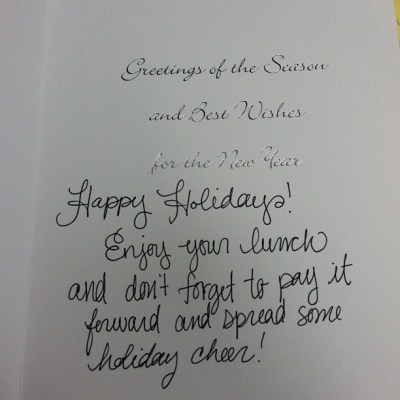 Greetings of the Season
and Best Wishes
for the New Year
Happy Holidays!
Enjoy your lunch
and don't forget to pay it
forward and spread some
holiday cheer!